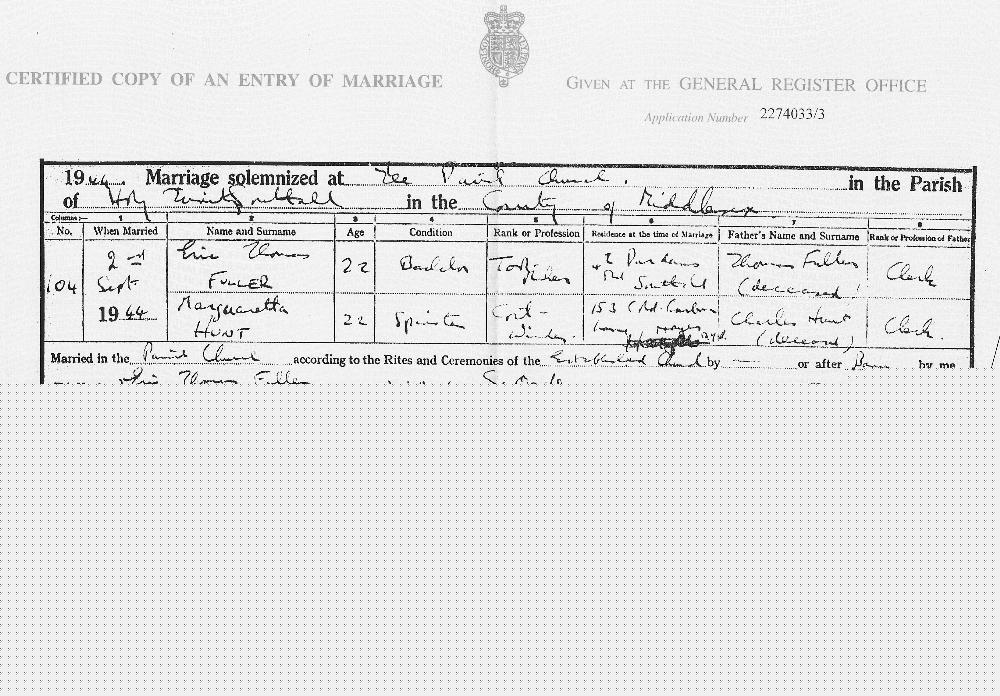 CERTIFIED COPY OF AN ENTRY OF MARRIAGE
GIVEN AT THE GENERAL REGISTER OFFICE
Application Number 2274033/3
1944. Marriage solemnized at The Parish Church. in the Parish
of Holy Trinity Southall in the County of Middlesex
Columns:— 1 2 3 4 5 6 7 8
No. When Married Name and Surname Age Condition Rank or Profession Residence at the time of Marriage Father's Name and Surname Rank or Profession of Father
104 2nd Sept 1944
Eric Thomas FULLER 22 Bachelor Southall Thomas Fuller (deceased) Clerk
Margueretta HUNT 22 Spinster 153 Charles Hunt (deceased) Clerk.
Married in the Parish Church according to the Rites and Ceremonies of the Established Church by — or after Banns by me
Eric Thomas Fuller